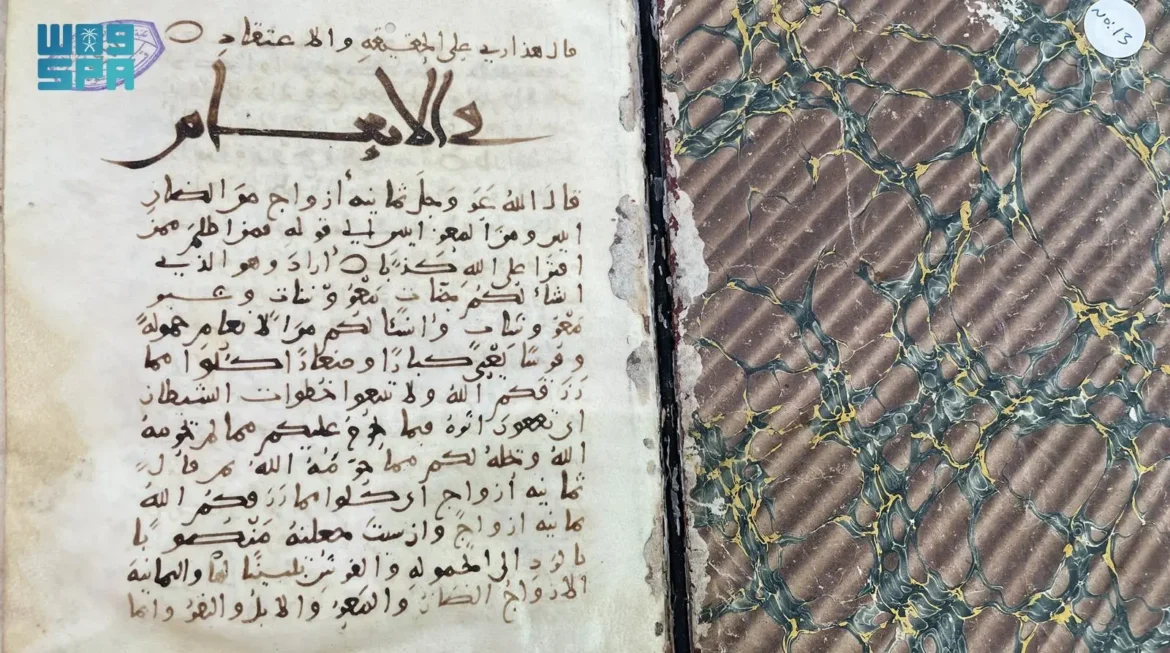 واس
SPA
No: 13
قال هذا ربي على الحقيقة والاعتقاد
و الانعام
قال الله عز وجل ثمانية أزواج من الضان
اثنين ومن المعز اثنين الى قوله فمن اظلم ممن
افترا على الله كذبا أراد وهو الذي
انشأ لكم جنات معروشات وغير
معروشات وانشأ لكم من الانعام حمولة
وفرشا يعني كبارا وصغارا كلوا مما
رزقكم الله ولا تتبعوا خطوات الشيطان
اي تقفون اثره فيما حرم عليكم مما لم يحرمه
الله وتحله لكم مما حرمه الله ثم قال
ثمانية أزواج اي كلوا مما رزقكم الله
ثمانية ازواج وان شئت جعلته منصوبا
بالرد الى الحمولة والفرش تبيينا لها والثمانية
الازواج الضان والمعز والابل والبقر وانما